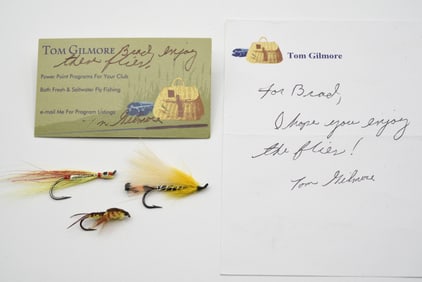 Tom Gilmore Brad, enjoy
these flies!
Power Point Programs For Your Club
Both Fresh & Saltwater Fly Fishing
e-mail Me For Program Listings
Tom Gilmore
Tom Gilmore
For Brad,
I hope you enjoy
the flies!
Tom Gilmore